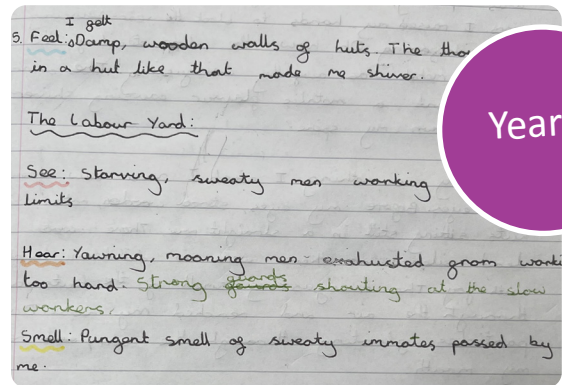 I felt
5. Feel: Damp, wooden walls of huts. The
in a hut like that made me shiver.
The Labour Yard:
See: Starving, sweaty men working
limits
Hear: Yawning, moaning men exahusted from
too hard. Strong guards shouting at the slow
workers.
Smell: Pungent smell of sweaty inmates passed by
me.
Year